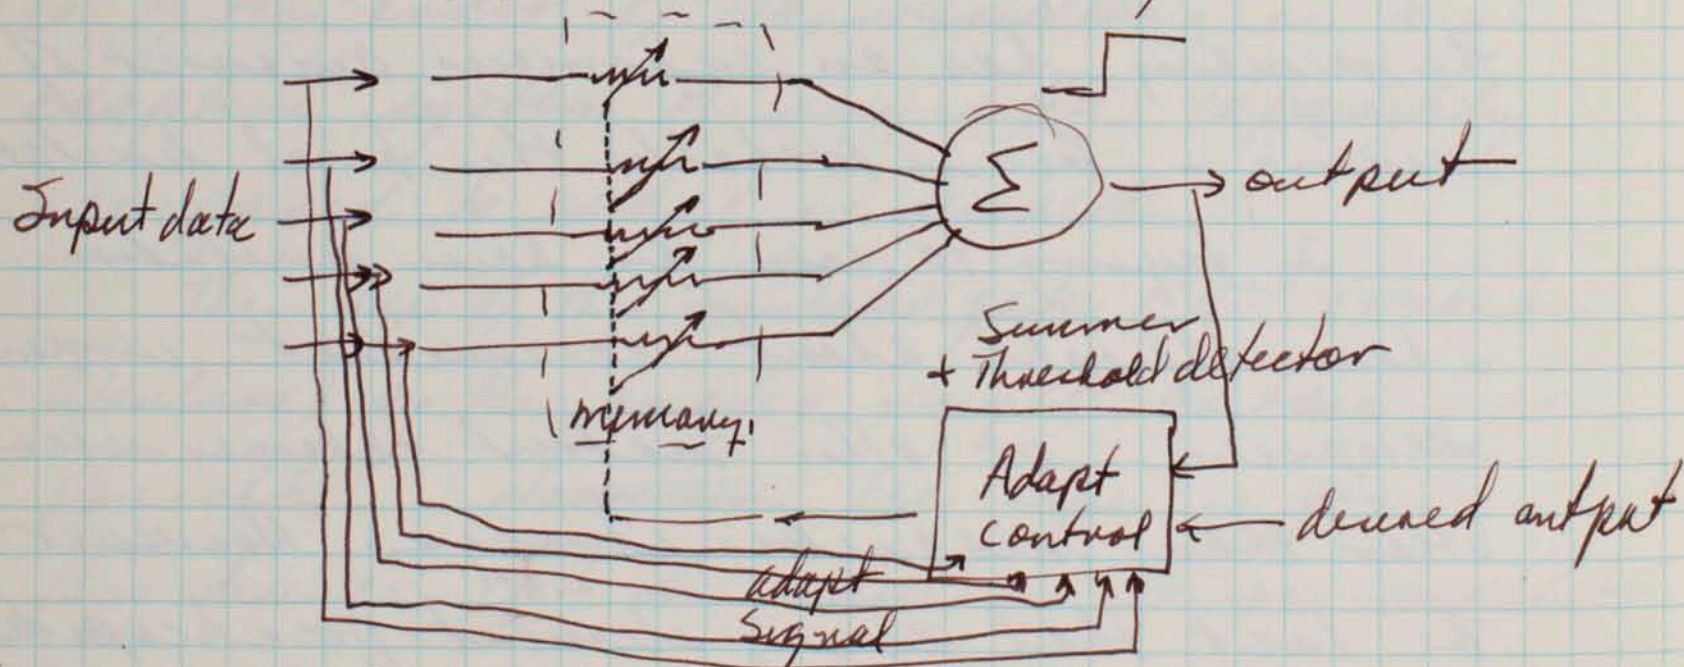 Σ
output
Input data
Summer
+ Threshold detector
memory
Adapt
Control
desired output
adapt
Signal